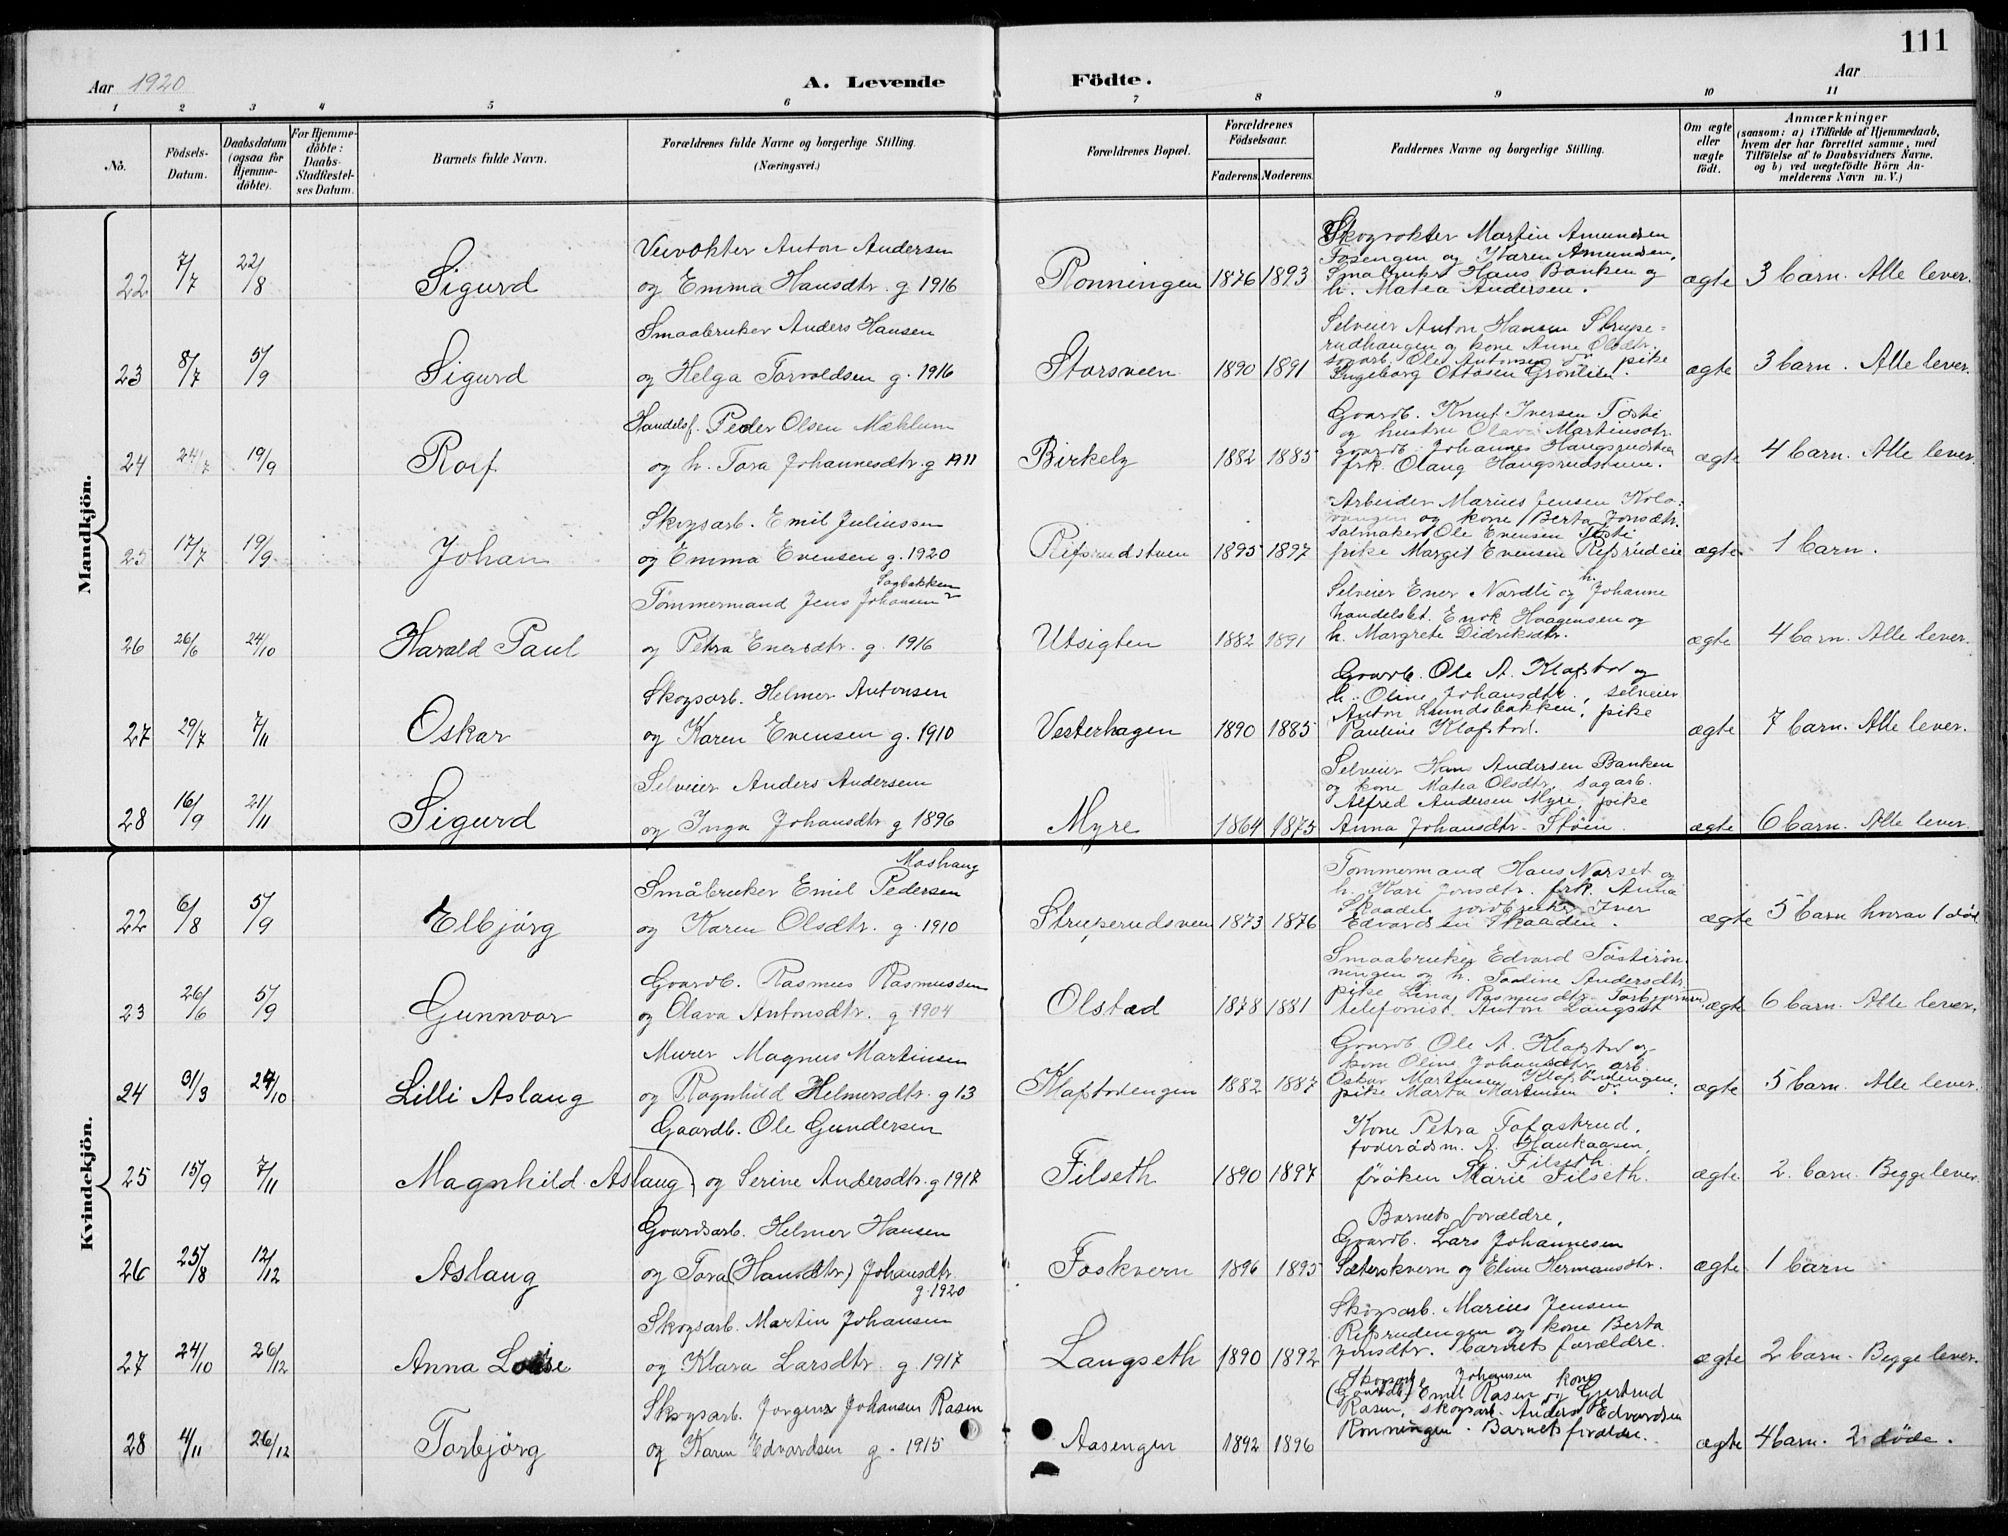 111
Aar 1920
A. Levende Födte.
Aar
1 2 3 4 5 6 7 8 9 10 11
No.
Födsels-Datum.
Daabsdatum (ogsaa for Hjemme-döbte).
For Hjemme-döbte: Daabs-Stadfæstel-ses Datum.
Barnets fulde Navn.
Forældrenes fulde Navne og borgerlige Stilling.
(Næringsvei.)
Forældrenes Bopæl.
Forældrenes Födselsaar.
Faderens. Moderens.
Faddernes Navne og borgerlige Stilling.
Om ægte eller uægte födt.
Anmærkninger
(saasom: a) i Tilfælde af Hjemmedaab,
hvem der har forrettet samme, med
Tilföielse af to Daabsvidners Navne.
og b) ved uægtefödte Börn An-
melderens Navn m. V.)
Mandkjön.
22 7/7 22/8 Sigurd
Veivokter Anton Andersen
og Emma Hansdtr. g. 1916
Rønningen 1876 1893
Skogvokter Martin Amundsen
Fosengen og Karen Amundsen,
Småbruker Hans Banken og
h. Matea Andersen.
ægte 3 barn. Alle lever.
23 8/7 5/9 Sigurd
Smaabruker Anders Hansen
og Helga Torvoldsen g. 1916
Storsveen 1890 1891
Selveier Anton Hansen Strupe-
rudhaugen og kone Anne Olsdtr.
sagarb. Ole Antonsen do pike
Ingeborg Ottosen Grønlien.
ægte 3 barn. Alle lever.
24 24/7 19/9 Rolf
Handelsf. Peder Olsen Mæhlum
og h. Tora Johannesdtr. g 1911
Birkely 1882 1885
Gaardb. Knut Iversen Tøsti
og hustru Olava Martinsdtr.
gaardb. Johannes Haugsrudstuen
frk. Olaug Haugsrudstuen.
ægte 4 barn. Alle lever.
25 17/7 19/9 Johan
Skogsarb. Emil Juliussen
og Emma Evensen g. 1920
Rifsrudstuen 1895 1897
Arbeider Marius Jensen Kola-
vangen og kone Berta Jonsdtr.
salmaker Ole Evensen Tøsti
pike Margit Evensen Rifsrudeie
ægte 1 barn.
26 26/6 24/10 Harald Paul
Sagbakken
Tømmermand Jens Johansen
og Petra Enersdtr. g. 1916
Utsigten 1882 1891
Selveier Ener Nordli og h. Johanne
handelsbt. Enok Haagensen og
h. Margrete Didriksdtr.
ægte 4 barn. Alle lever.
27 29/7 7/11 Oskar
Skogsarb. Helmer Antonsen
og Karen Evensen g. 1910
Vesterhagen 1890 1885
Gaardb. Ole A. Klafstad og
h. Oline Johansdtr., selveier
Anton Lundsbakken, pike
Pauline Klafstad.
ægte 7 barn. Alle lever.
28 16/9 21/11 Sigurd
Selveier Anders Andersen
og Inga Johansdtr g 1896
Myre 1864 1875
Selveier Hans Andersen Banken
og kone Matea Olsdtr, sagarb.
Alfred Andersen Myre, pike
Anna Johansdtr. Støen.
ægte 6 barn. Alle lever.
Kvindekjön.
22 6/8 5/9 Elbjørg
Moshaug
Småbruker Emil Pedersen
og Karen Olsdtr. g. 1910
Struperudsveen 1873 1876
Tømmermand Hans Norset og
h. Kari Jonsdtr. frk. Anna
Skaaden, jordbruker Iver
Edvardsen Skaaden.
ægte 5 barn hvorav 1 død
23 26/6 5/9 Gunnvor
Gaardb. Rasmus Rasmussen
og Olava Antonsdtr. g 1904
Olstad 1878 1881
Smaabruker Edvard Tøstirøn-
ningen og h. Todine Andersdtr.
pike Lina Rasmusdtr.
telefonist Anton Langset
ægte 6 barn. Alle lever.
24 31/3 24/10 Lilli Aslaug
Murer Magnus Martinsen
og Ragnhild Helmersdtr. g 13
Klafstadengen 1882 1887
Gaardb. Ole A. Klafstad og
kone Oline Johansdtr. arb.
Oskar Martinsen Klafstadengen,
pike Marta Martinsen do.
ægte 5 barn. Alle lever.
25 15/9 7/11 Magnhild Aslaug
Gaardb. Ole Gundersen
og Serine Andersdtr. g 1917
Filseth 1890 1897
Kone Petra Tofastrud,
foderådsm. A. Haukaasen,
L. Filseth
frøken Marie Filseth.
ægte 2. barn. Begge lever.
26 25/8 12/12 Aslaug
Gaardsarb. Helmer Hansen
og Tora (Hansdtr) Johansdtr.
g. 1920
Foskvern 1896 1895
Barnets forældre,
Gaardb. Lars Johannesen
Sæterskvern og Eline Hermansdtr.
ægte 1 barn
27 24/10 26/12 Anna Loise
Skogsarb. Martin Johansen
og Klara Larsdtr. g 1917
Langseth 1890 1892
Skogsarb. Marius Jensen
Rifsrudengen og kone Berta
Jonsdtr. barnets forældre.
ægte 2 barn. Begge lever.
28 4/11 26/12 Torbjørg
Skogsarb. Jørgen Johansen Rasen
og Karen Edvardsen g. 1915
Aasengen 1892 1896
Skogsarb. Johansen kone
(Gaardb.) Emil Rasen og Gurtrud
Rasen, skogsarb. Anders Edvardsen
Rønningen. Barnets forældre.
ægte 4 barn. 2 døde.